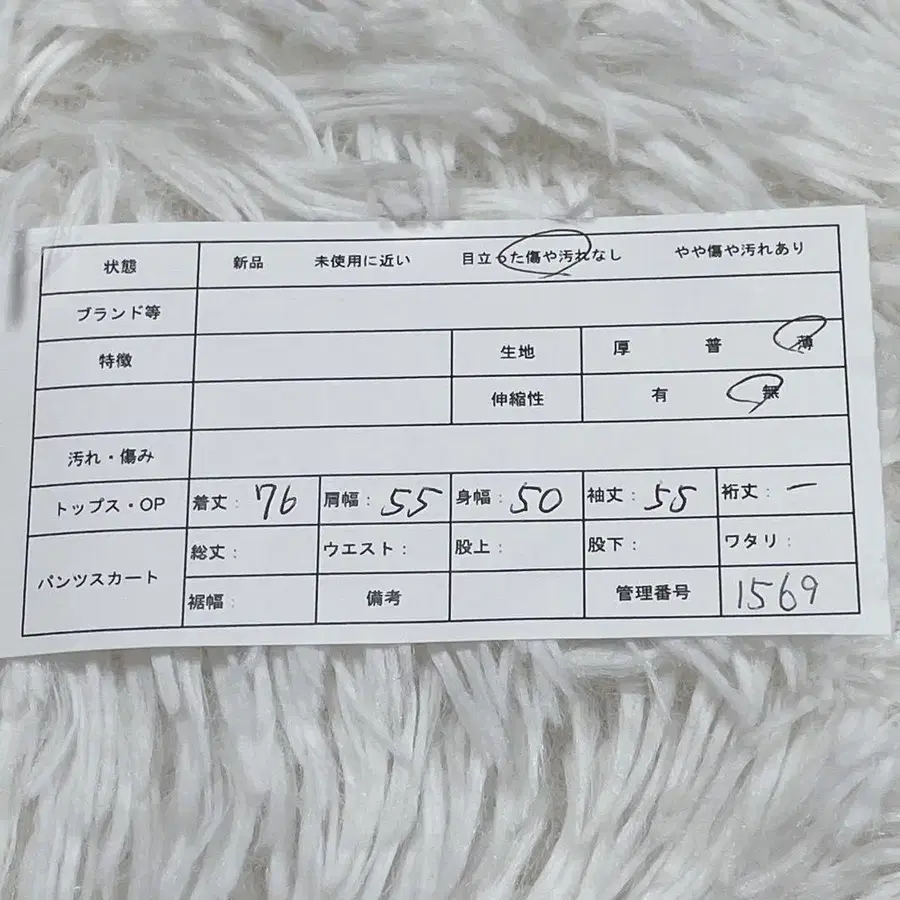 状態 新品 未使用に近い 目立った傷や汚れなし やや傷や汚れあり
ブランド等
特徴 生地 厚 普 薄
伸縮性 有 無
汚れ・傷み
トップス・OP 着丈: 76 肩幅: 55 身幅: 50 袖丈: 55 裄丈: ー
パンツスカート 総丈: ウエスト: 股上: 股下: ワタリ:
裾幅: 備考 管理番号 1569